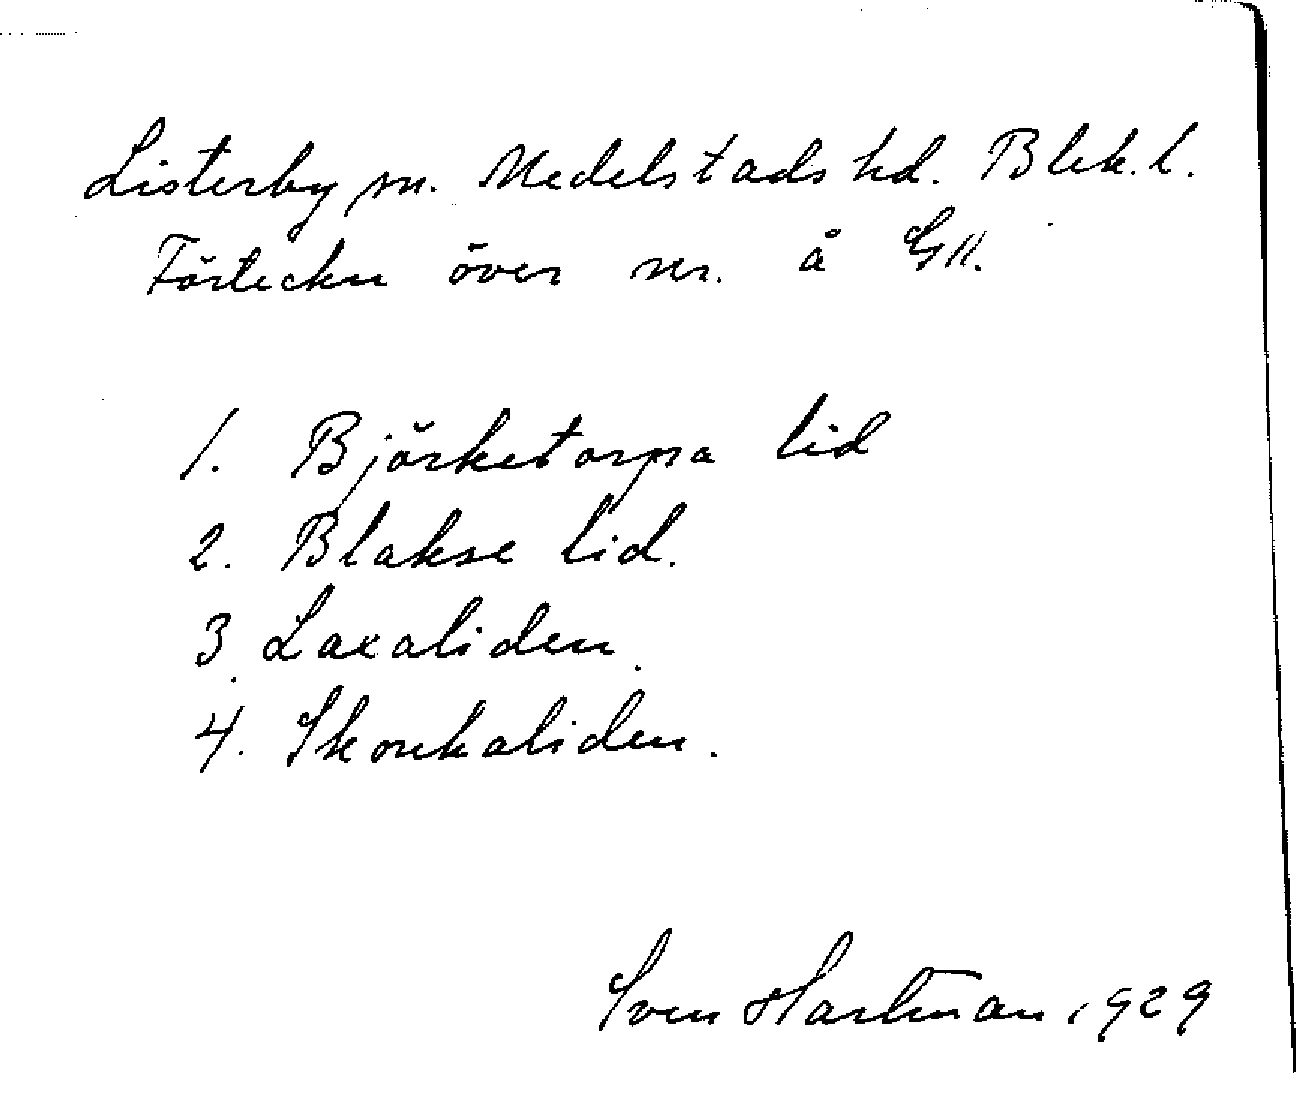 Listerby sn. Medelstads hd. Blek. l.
Förteckn över nr. å GK.
1. Björketorpa lid
2. Blakse lid.
3. Laxaliden.
4. Skonkaliden.
Sven Hartman 1929